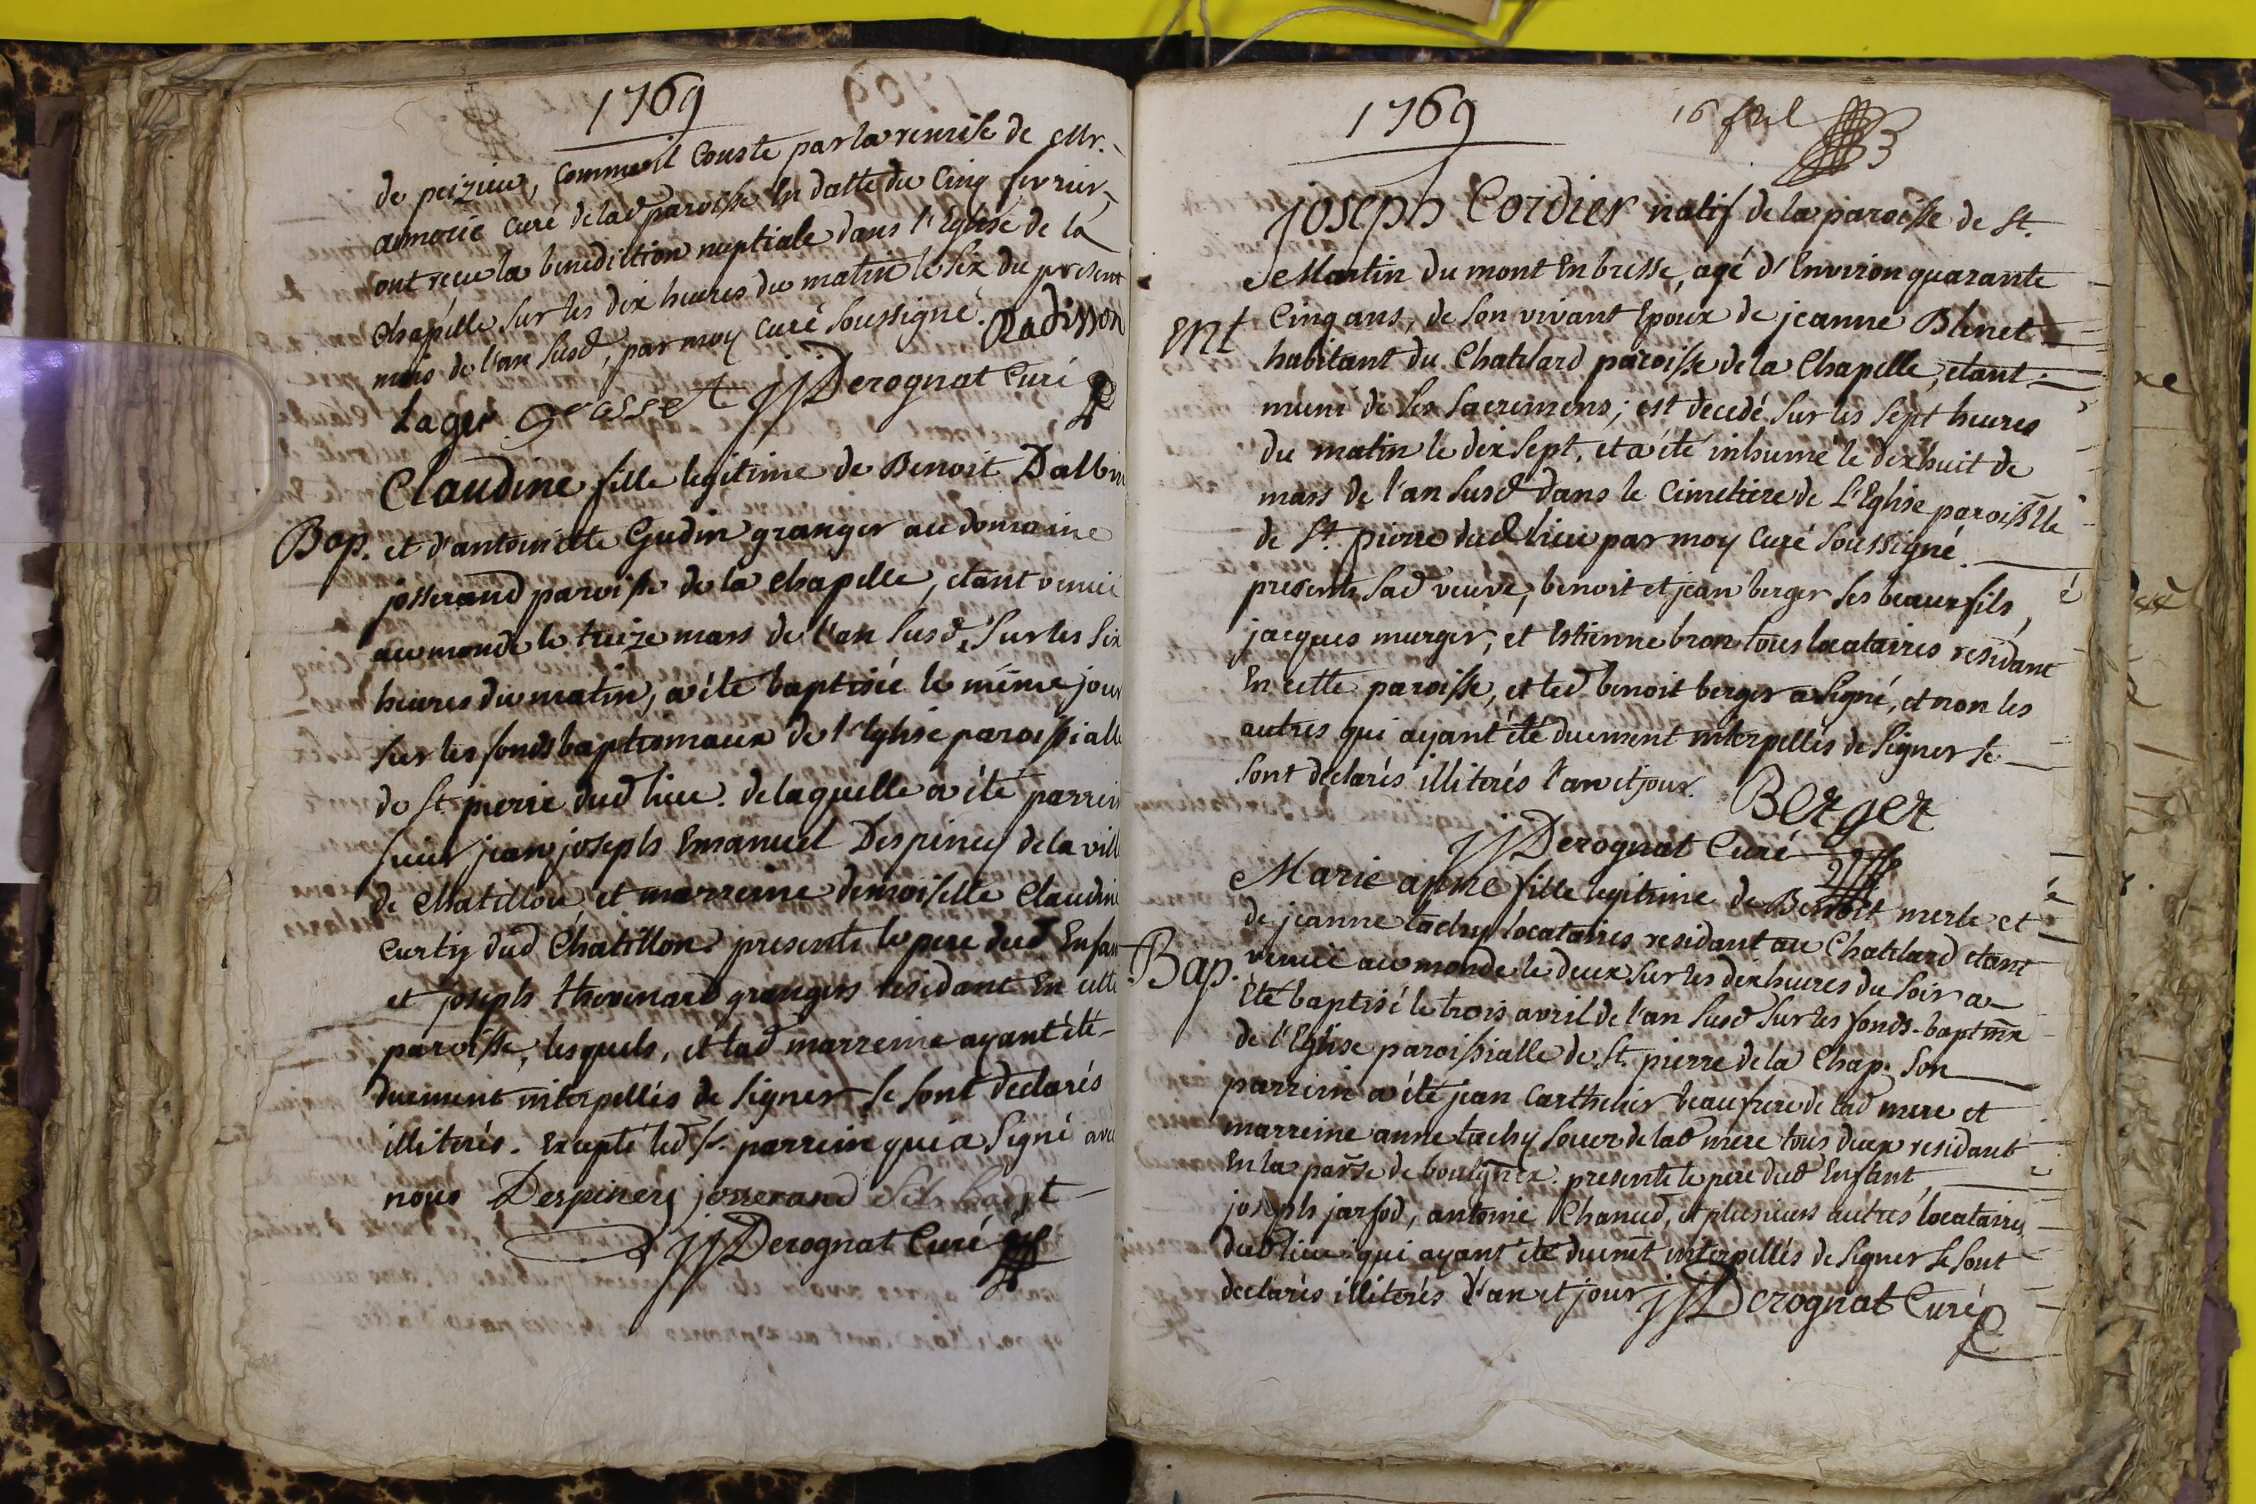 1769
de peizieu, comme il conste par la remise de Mr.
aimorié curé de lad paroisse en datte du cinq fevrier,
ont recue la benediction nuptiale dans l'Eglise de la
chapelle sur les dix heures du matin le six du present
mois de l'an susd, par moy curé soussigné. Radisson
Lager Grasset jjDerognat Curé
Claudine fille legitime de Benoit Dalbin
Bap. et d'antoinette Gudin granger au domaine
josserand paroisse de la chapelle, etant venüe
au monde le treize mars de l'an susd, sur les six
heures du matin, a été baptisée le même jour
sur les fonds baptismaux de l'Eglise paroissialle
de St. pierre dud lieu. de laquelle a été parrein
sieur jean joseph Emanuel Despiney de la ville
de chatillon et marreine demoiselle Claudine
Curty dud Chatillon. presents le pere dud Enfant
et joseph thevenard grangers residant En cette
paroisse, lesquels, et lad marreine ayant été
duement interpellés de signer se sont declarés
illiterés. Excepté led sr. parrein qui a signé avec
nous Despiney josserand
jjDerognat Curé
1769
16 fzil
joseph Cordier natif de la paroisse de St.
Martin du mont en bresse, agé d'Environ quarante
Ent cinq ans, de son vivant Epoux de jeanne Blenet
habitant du Chatelard paroisse de la Chapelle, etant
muni de ses sacremens; est decedé sur les sept heures
du matin le dix sept, et a été inhumé le dix huit de
mars de l'an susd dans le cimetiere de L'Eglise paroisslle
de St. pierre dud lieu par moy curé soussigné.
presents sad veuve, benoit et jean berger ses beaux fils,
jacques murger, et Estienne bron tous locataires residant
En cette paroisse, et led benoit berger a signé, et non les
autres qui ayant été duement interpellés de signer se
sont declarés illiterés l'an et jour. Berger
jjDerognat Curé
Marie anne fille legitime de Benoit merle et
de jeanne tachy locataires residant au Chatelard etant
Bap. venüe au monde le deux sur les dix heures du soir a
été baptisé le trois avril de l'an susd sur les fonds-baptmx
de l'Eglise paroissialle de St. pierre de la Chap. son
parrein a été jean carthelier beaufrere de lad mere et
marreine anne tachy soeur de lad mere tous deux residant
En la parsse de bouligneux. presents le pere dud Enfant,
joseph jarfod, antoine Chanud, et plusieurs autres locataires
dud lieu qui ayant été duemt interpellés de signer se sont
declarés illiterés l'an et jour jjDerognat Curé